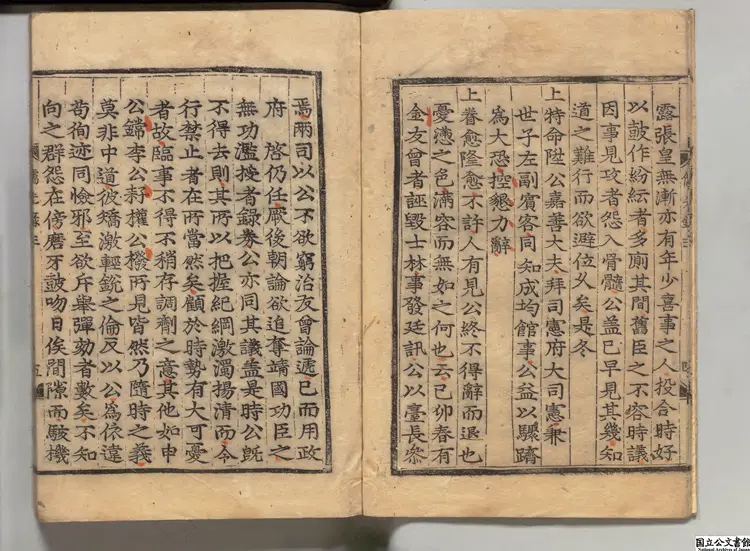 露張皇無漸亦有年少喜事之人投合時好
以皷作紛紜者多厠其間舊臣之不容時議
因事見攻者怨入骨髓公盖已早見其幾知
道之難行而欲避位乆矣是冬
上特命陞公嘉善大夫拜司憲府大司憲兼
世子左副賓客同知成均館事公益以驟躋
爲大恐控懇力辭
上眷愈隆愈不許人有見公終不得辭而退也
憂懣之色滿容而無如之何也云己卯春有
金友曾者誣毀士林事發廷訊公以臺長叅
焉兩司以公不欲窮治友曾論遞已而用政
府 啓仍任厥後朝論欲追奪靖國功臣之
無功濫授者録劵公亦同其議盖是時公旣
不得去則其所以把握紀綱激濁揚清而令
行禁止者在所當然矣顧於時勢有大可憂
者故臨事不得不稍存調劑之意其他如申
公鏛李公耔權公撥所見皆然乃隨時之義
莫非中道彼矯激輕銳之倫反以公爲依違
苟徇迹同憸邪至欲斥舉彈劾者數矣不知
向之群怨在傍磨牙皷吻日俟間隙而駭機
儒先錄三
五
国立公文書館
National Archives of Japan